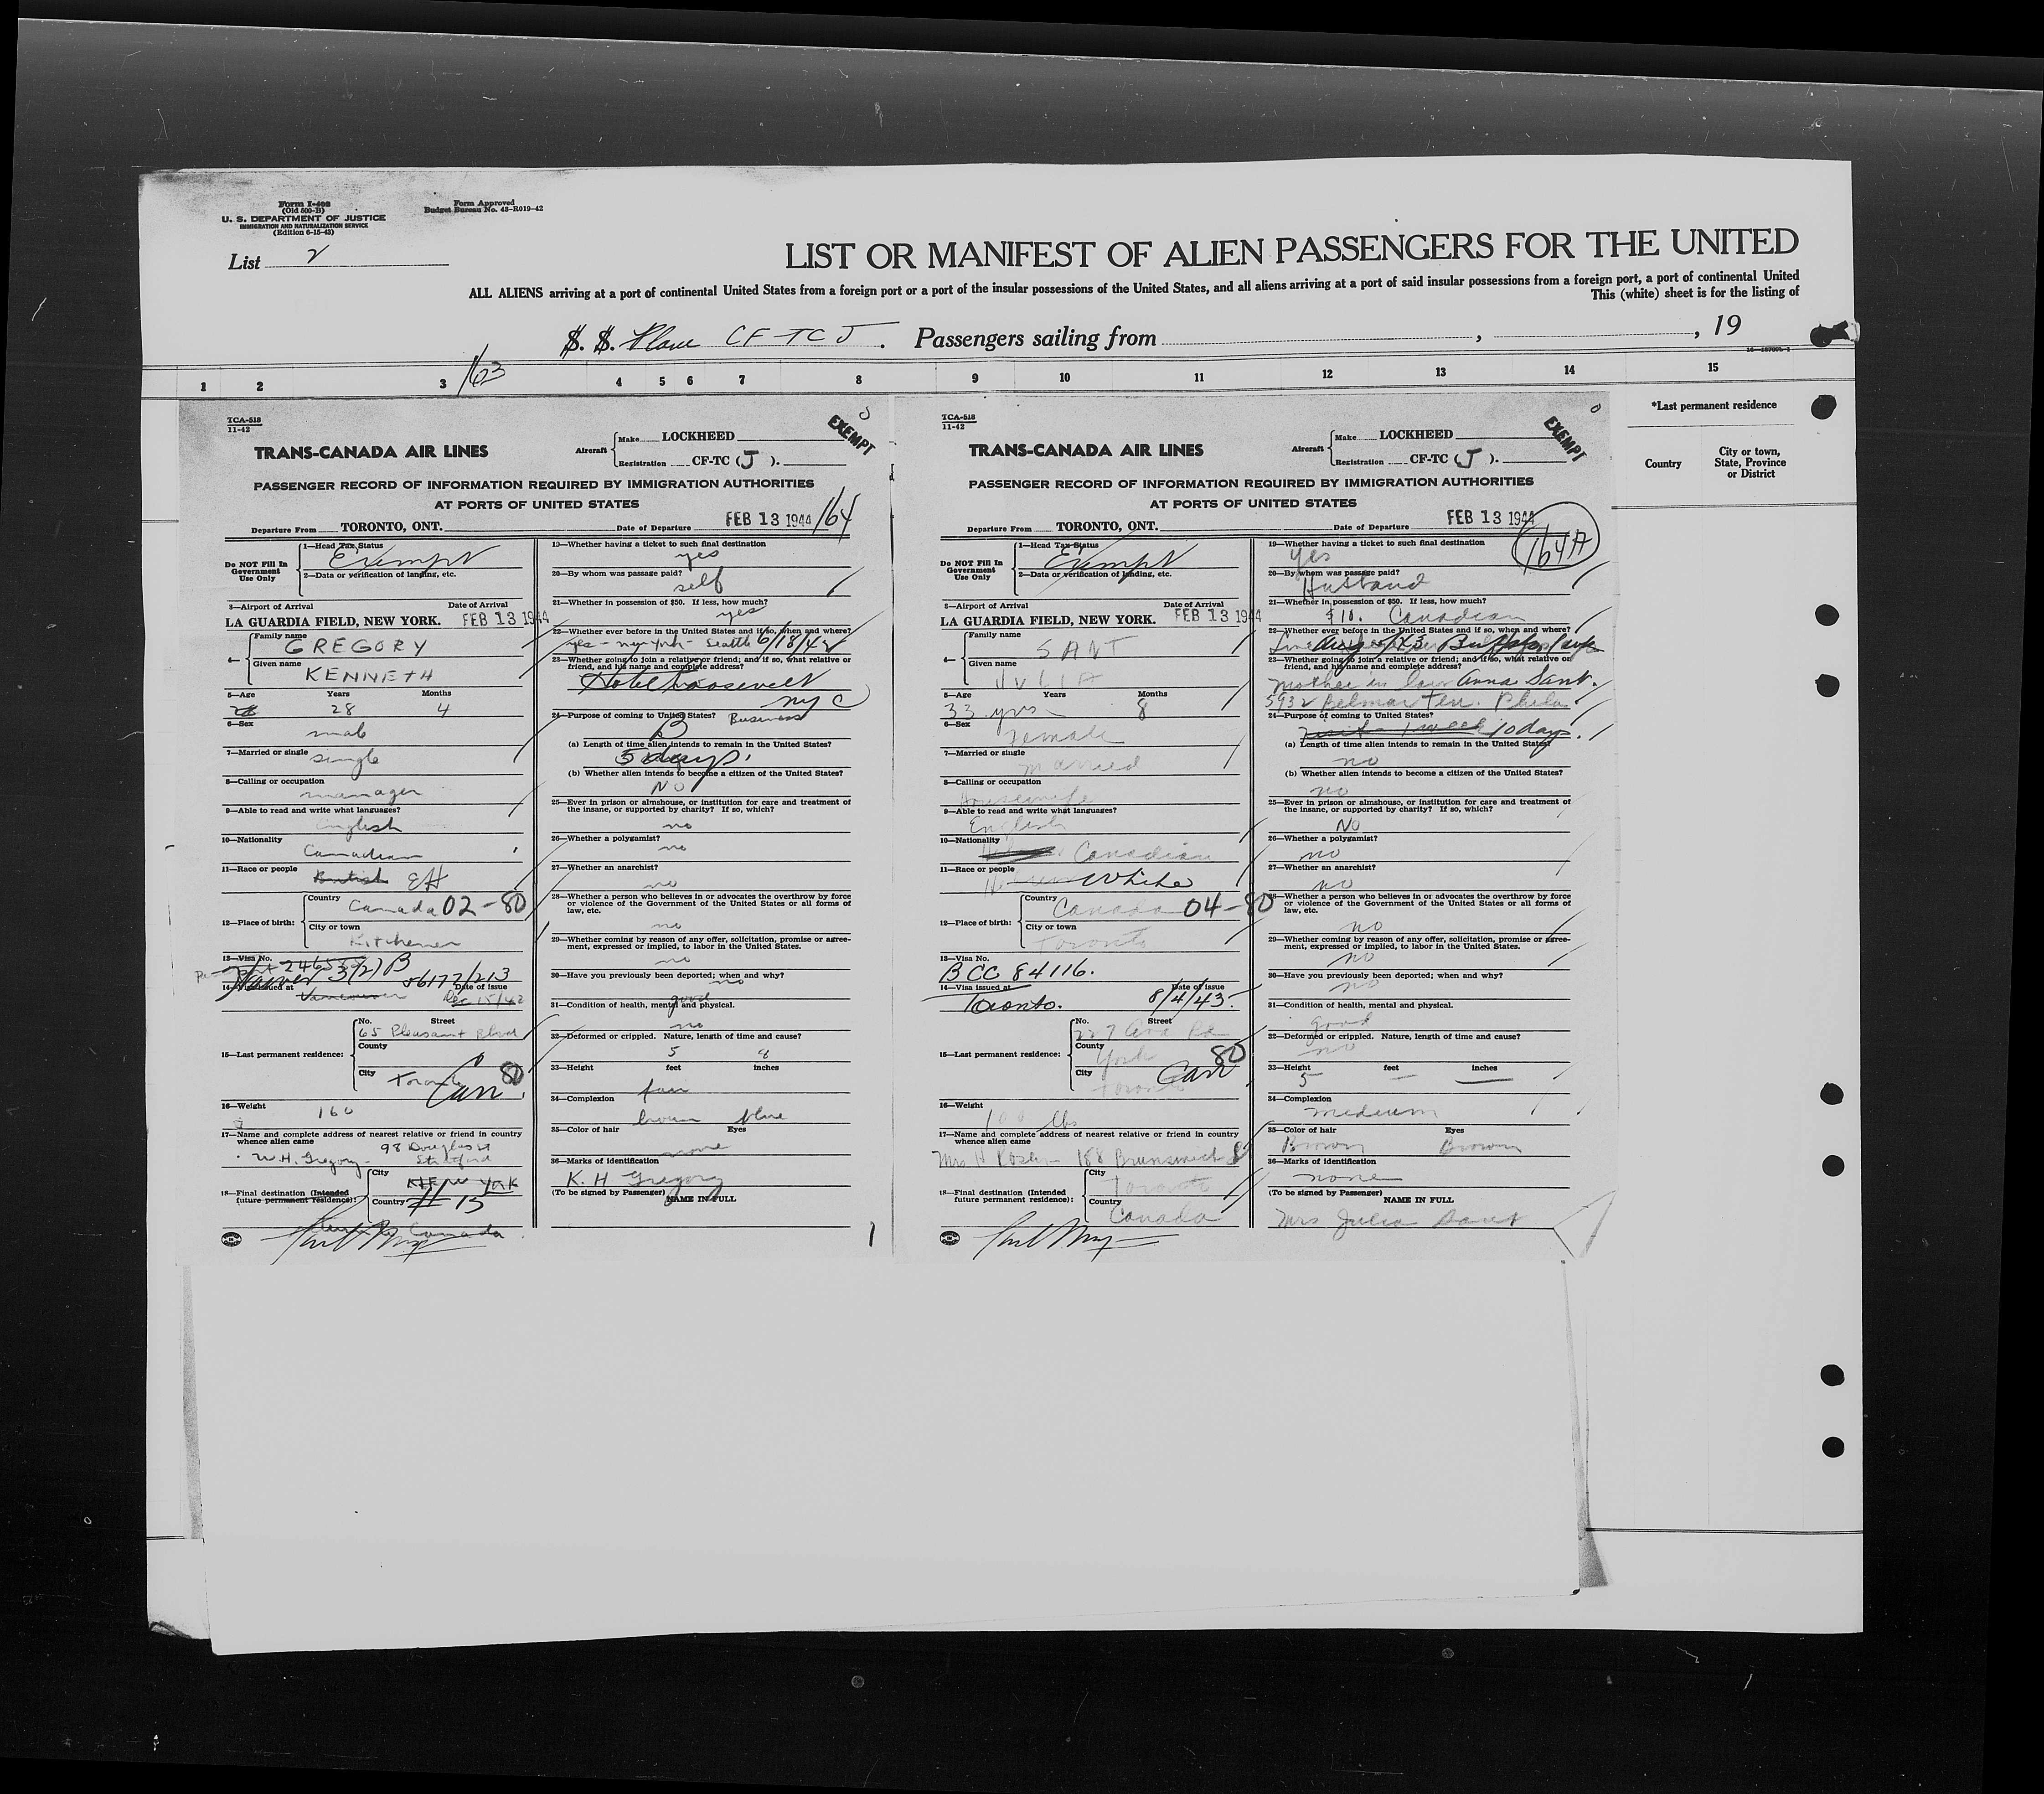 Form I-466
(Old 500-B)
U. S. DEPARTMENT OF JUSTICE
IMMIGRATION AND NATURALIZATION SERVICE
(Edition 6-15-43)
Form Approved
Budget Bureau No. 43-R019-42
List 2
LIST OR MANIFEST OF ALIEN PASSENGERS FOR THE UNITED
ALL ALIENS arriving at a port of continental United States from a foreign port or a port of the insular possessions of the United States, and all aliens arriving at a port of said insular possessions from a foreign port, a port of continental United
This (white) sheet is for the listing of
S. S. Plane CF-TCJ . Passengers sailing from , , 19
1 2 3 163 4 5 6 7 8 9 10 11 12 13 14 15
*Last permanent residence
Country
City or town, State, Province or District
TCA-518
11-42
TRANS-CANADA AIR LINES
Aircraft Make LOCKHEED
Registration CF-TC (J).
EXEMPT
PASSENGER RECORD OF INFORMATION REQUIRED BY IMMIGRATION AUTHORITIES
AT PORTS OF UNITED STATES
Departure From TORONTO, ONT. Date of Departure FEB 13 1944 164
Do NOT Fill In Government Use Only
1—Head Tax Status
Exempt
2—Data or verification of landing, etc.
3—Airport of Arrival Date of Arrival
LA GUARDIA FIELD, NEW YORK. FEB 13 1944
4—
Family name
GREGORY
Given name
KENNETH
5—Age Years Months
28 4
6—Sex
male
7—Married or single
single
8—Calling or occupation
manager
9—Able to read and write what languages?
English
10—Nationality
Canadian
11—Race or people
British EH
12—Place of birth:
Country
Canada 02-80
City or town
Kitchener
13—Visa No.
3(2) B
14—Visa issued at Date of issue
Vancouver Dec 15/42
15—Last permanent residence:
No. Street
65 Pleasant Blvd
County
City
Toronto Can 80
16—Weight
160
17—Name and complete address of nearest relative or friend in country whence alien came
W.H. Gregory - 98 Douglas St
Stratford
18—Final destination (Intended future permanent residence):
City
NEW YORK
Country
Canada
19—Whether having a ticket to such final destination
yes
20—By whom was passage paid?
self
21—Whether in possession of $50. If less, how much?
yes
22—Whether ever before in the United States and if so, when and where?
yes - New York - Seattle 6/18/42
23—Whether going to join a relative or friend; and if so, what relative or friend, and his name and complete address?
Hotel Roosevelt
NYC
24—Purpose of coming to United States? Business
B
(a) Length of time alien intends to remain in the United States?
5 days.
(b) Whether alien intends to become a citizen of the United States?
NO
25—Ever in prison or almshouse, or institution for care and treatment of the insane, or supported by charity? If so, which?
no
26—Whether a polygamist?
no
27—Whether an anarchist?
no
28—Whether a person who believes in or advocates the overthrow by force or violence of the Government of the United States or all forms of law, etc.
no
29—Whether coming by reason of any offer, solicitation, promise or agreement, expressed or implied, to labor in the United States.
no
30—Have you previously been deported; when and why?
no
31—Condition of health, mental and physical.
good
no
32—Deformed or crippled. Nature, length of time and cause?
5 8
33—Height feet inches
fair
34—Complexion
brown blue
35—Color of hair Eyes
none
36—Marks of identification
K. H Gregory
(To be signed by Passenger) NAME IN FULL
TCA-518
11-42
TRANS-CANADA AIR LINES
Aircraft Make LOCKHEED
Registration CF-TC (J).
EXEMPT
PASSENGER RECORD OF INFORMATION REQUIRED BY IMMIGRATION AUTHORITIES
AT PORTS OF UNITED STATES
Departure From TORONTO, ONT. Date of Departure FEB 13 1944
164A
Do NOT Fill In Government Use Only
1—Head Tax Status
Exempt
2—Data or verification of landing, etc.
3—Airport of Arrival Date of Arrival
LA GUARDIA FIELD, NEW YORK. FEB 13 1944
4—
Family name
SANT
Given name
JULIA
5—Age Years Months
33 yrs 8
6—Sex
Female
7—Married or single
Married
8—Calling or occupation
Housewife
9—Able to read and write what languages?
English
10—Nationality
Canadian
11—Race or people
White
12—Place of birth:
Country
Canada 04-80
City or town
Toronto
13—Visa No.
BCC 84116.
14—Visa issued at Date of issue
Toronto. 8/4/43
15—Last permanent residence:
No. Street
227 Ava Rd
County
York 80
City
Toronto Can
16—Weight
100 lbs
17—Name and complete address of nearest relative or friend in country whence alien came
Mrs H 188 Brunswick
18—Final destination (Intended future permanent residence):
City
Toronto
Country
Canada
19—Whether having a ticket to such final destination
Yes
20—By whom was passage paid?
Husband
21—Whether in possession of $50. If less, how much?
$10. Canadian
22—Whether ever before in the United States and if so, when and where?
Aug Buffalo
23—Whether going to join a relative or friend; and if so, what relative or friend, and his name and complete address?
Mother in law Anna Sant.
5932 Belmar Terr. Phila
24—Purpose of coming to United States?
Visit - 1 week 10 days.
(a) Length of time alien intends to remain in the United States?
no
(b) Whether alien intends to become a citizen of the United States?
no
25—Ever in prison or almshouse, or institution for care and treatment of the insane, or supported by charity? If so, which?
NO
26—Whether a polygamist?
no
27—Whether an anarchist?
no
28—Whether a person who believes in or advocates the overthrow by force or violence of the Government of the United States or all forms of law, etc.
no
29—Whether coming by reason of any offer, solicitation, promise or agreement, expressed or implied, to labor in the United States.
no
30—Have you previously been deported; when and why?
no
31—Condition of health, mental and physical.
good
32—Deformed or crippled. Nature, length of time and cause?
no
33—Height feet inches
5 —
34—Complexion
medium
35—Color of hair Eyes
Brown Brown
36—Marks of identification
none
(To be signed by Passenger) NAME IN FULL
Mrs Julia Sant